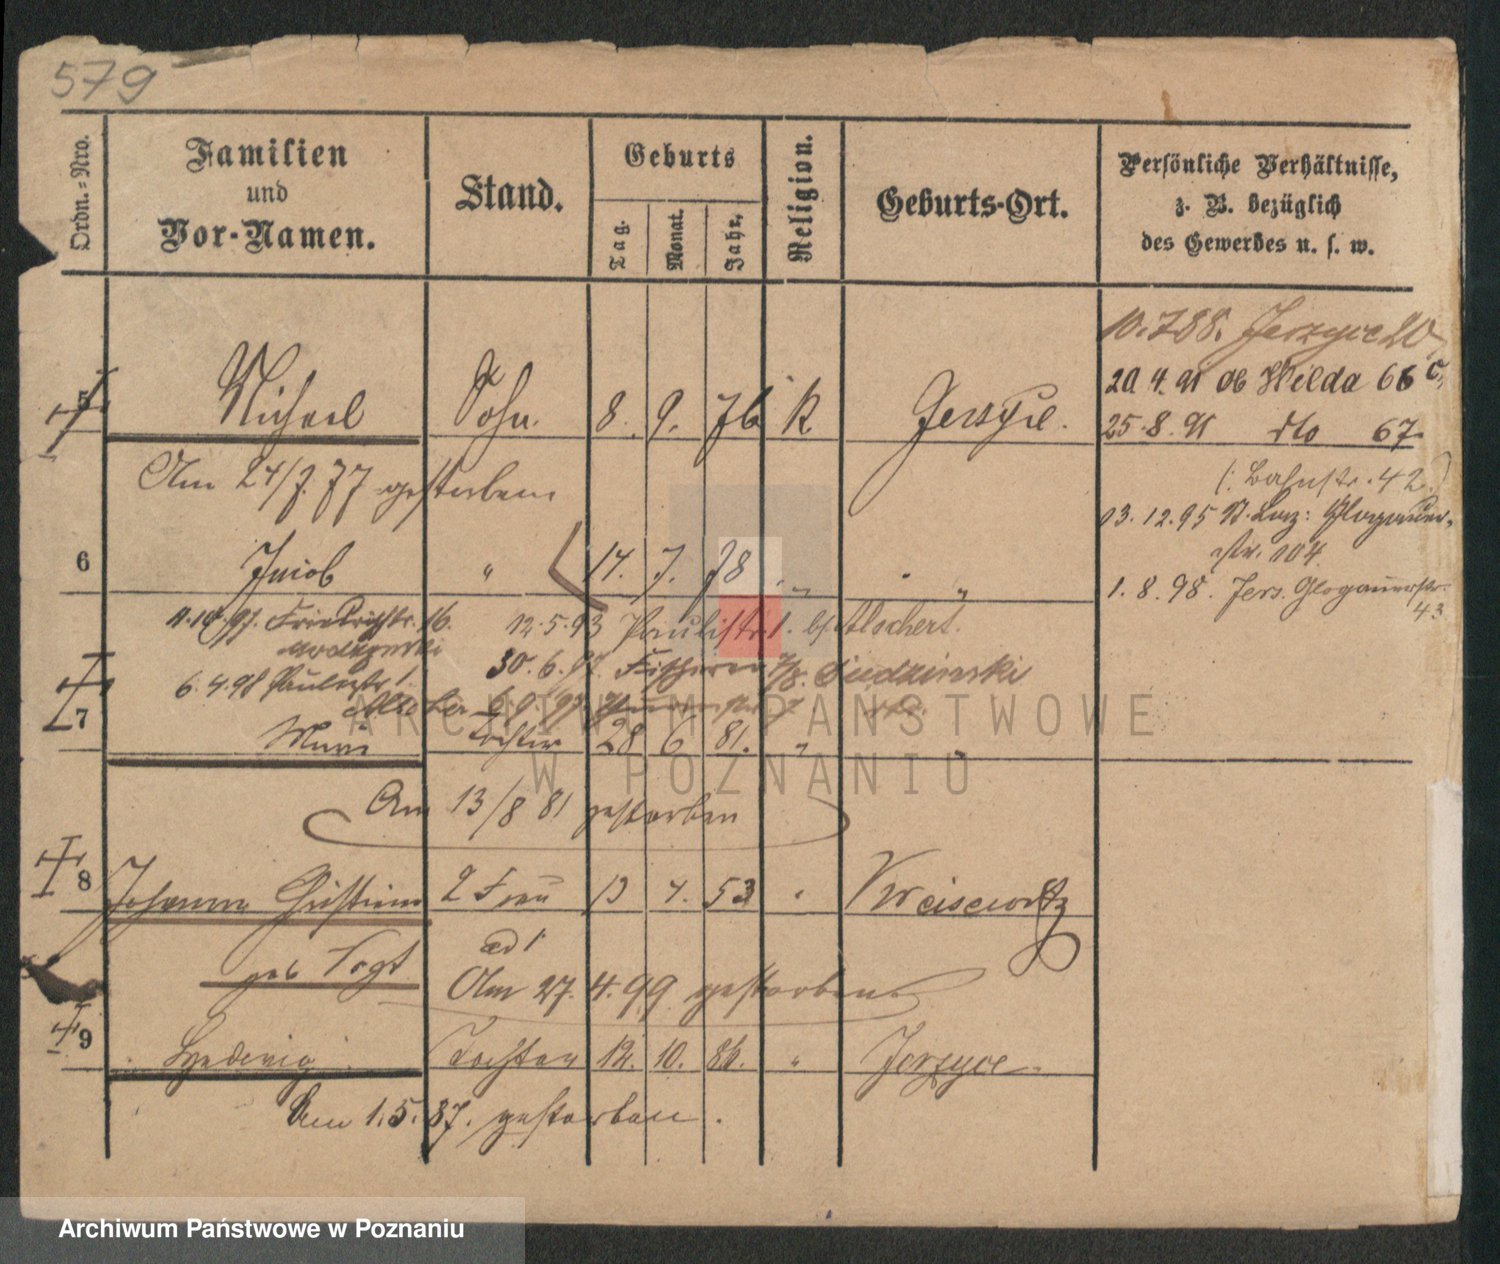 579
Ordn.-Nro.
Familien
und
Vor-Namen.
Stand.
Geburts
Tag.
Monat.
Jahr.
Religion.
Geburts-Ort.
Persönliche Verhältnisse,
z. B. bezüglich
des Gewerbes u. s. w.
10.7.88. Jerzyce
20.4.91 ob Wilda 66 c,
25.8.91 do 67.
(: Bahnstr. 42 :)
13.12.95 St. Laz: Glogauer-
str. 104.
1.8.98. Jers. Glogauerstr.
43
5 Michael Sohn. 8. 9. 76 K Jersyce.
Am 24/7. 77 gestorben
6 Jacob " 17. 7. 78 " " "
Friedrichstr. 16.
12.5.93 Paulistr. 1. b/
6.4.98 Paulistr 1.
30.6.97. Sudzinski
7 Marie Tochter 28 6 81. " "
Am 13/8 81 gestorben
8 Johanna Christine 2 Frau 13 4. 53 "
geb Vogt
ad 1
Am 27.4.99 gestorben.
9 Hedwig Tochter 12. 10. 86. " Jerzyce.
Am 1.5.87. gestorben.
ARCHIWUM PAŃSTWOWE
W POZNANIU
Archiwum Państwowe w Poznaniu